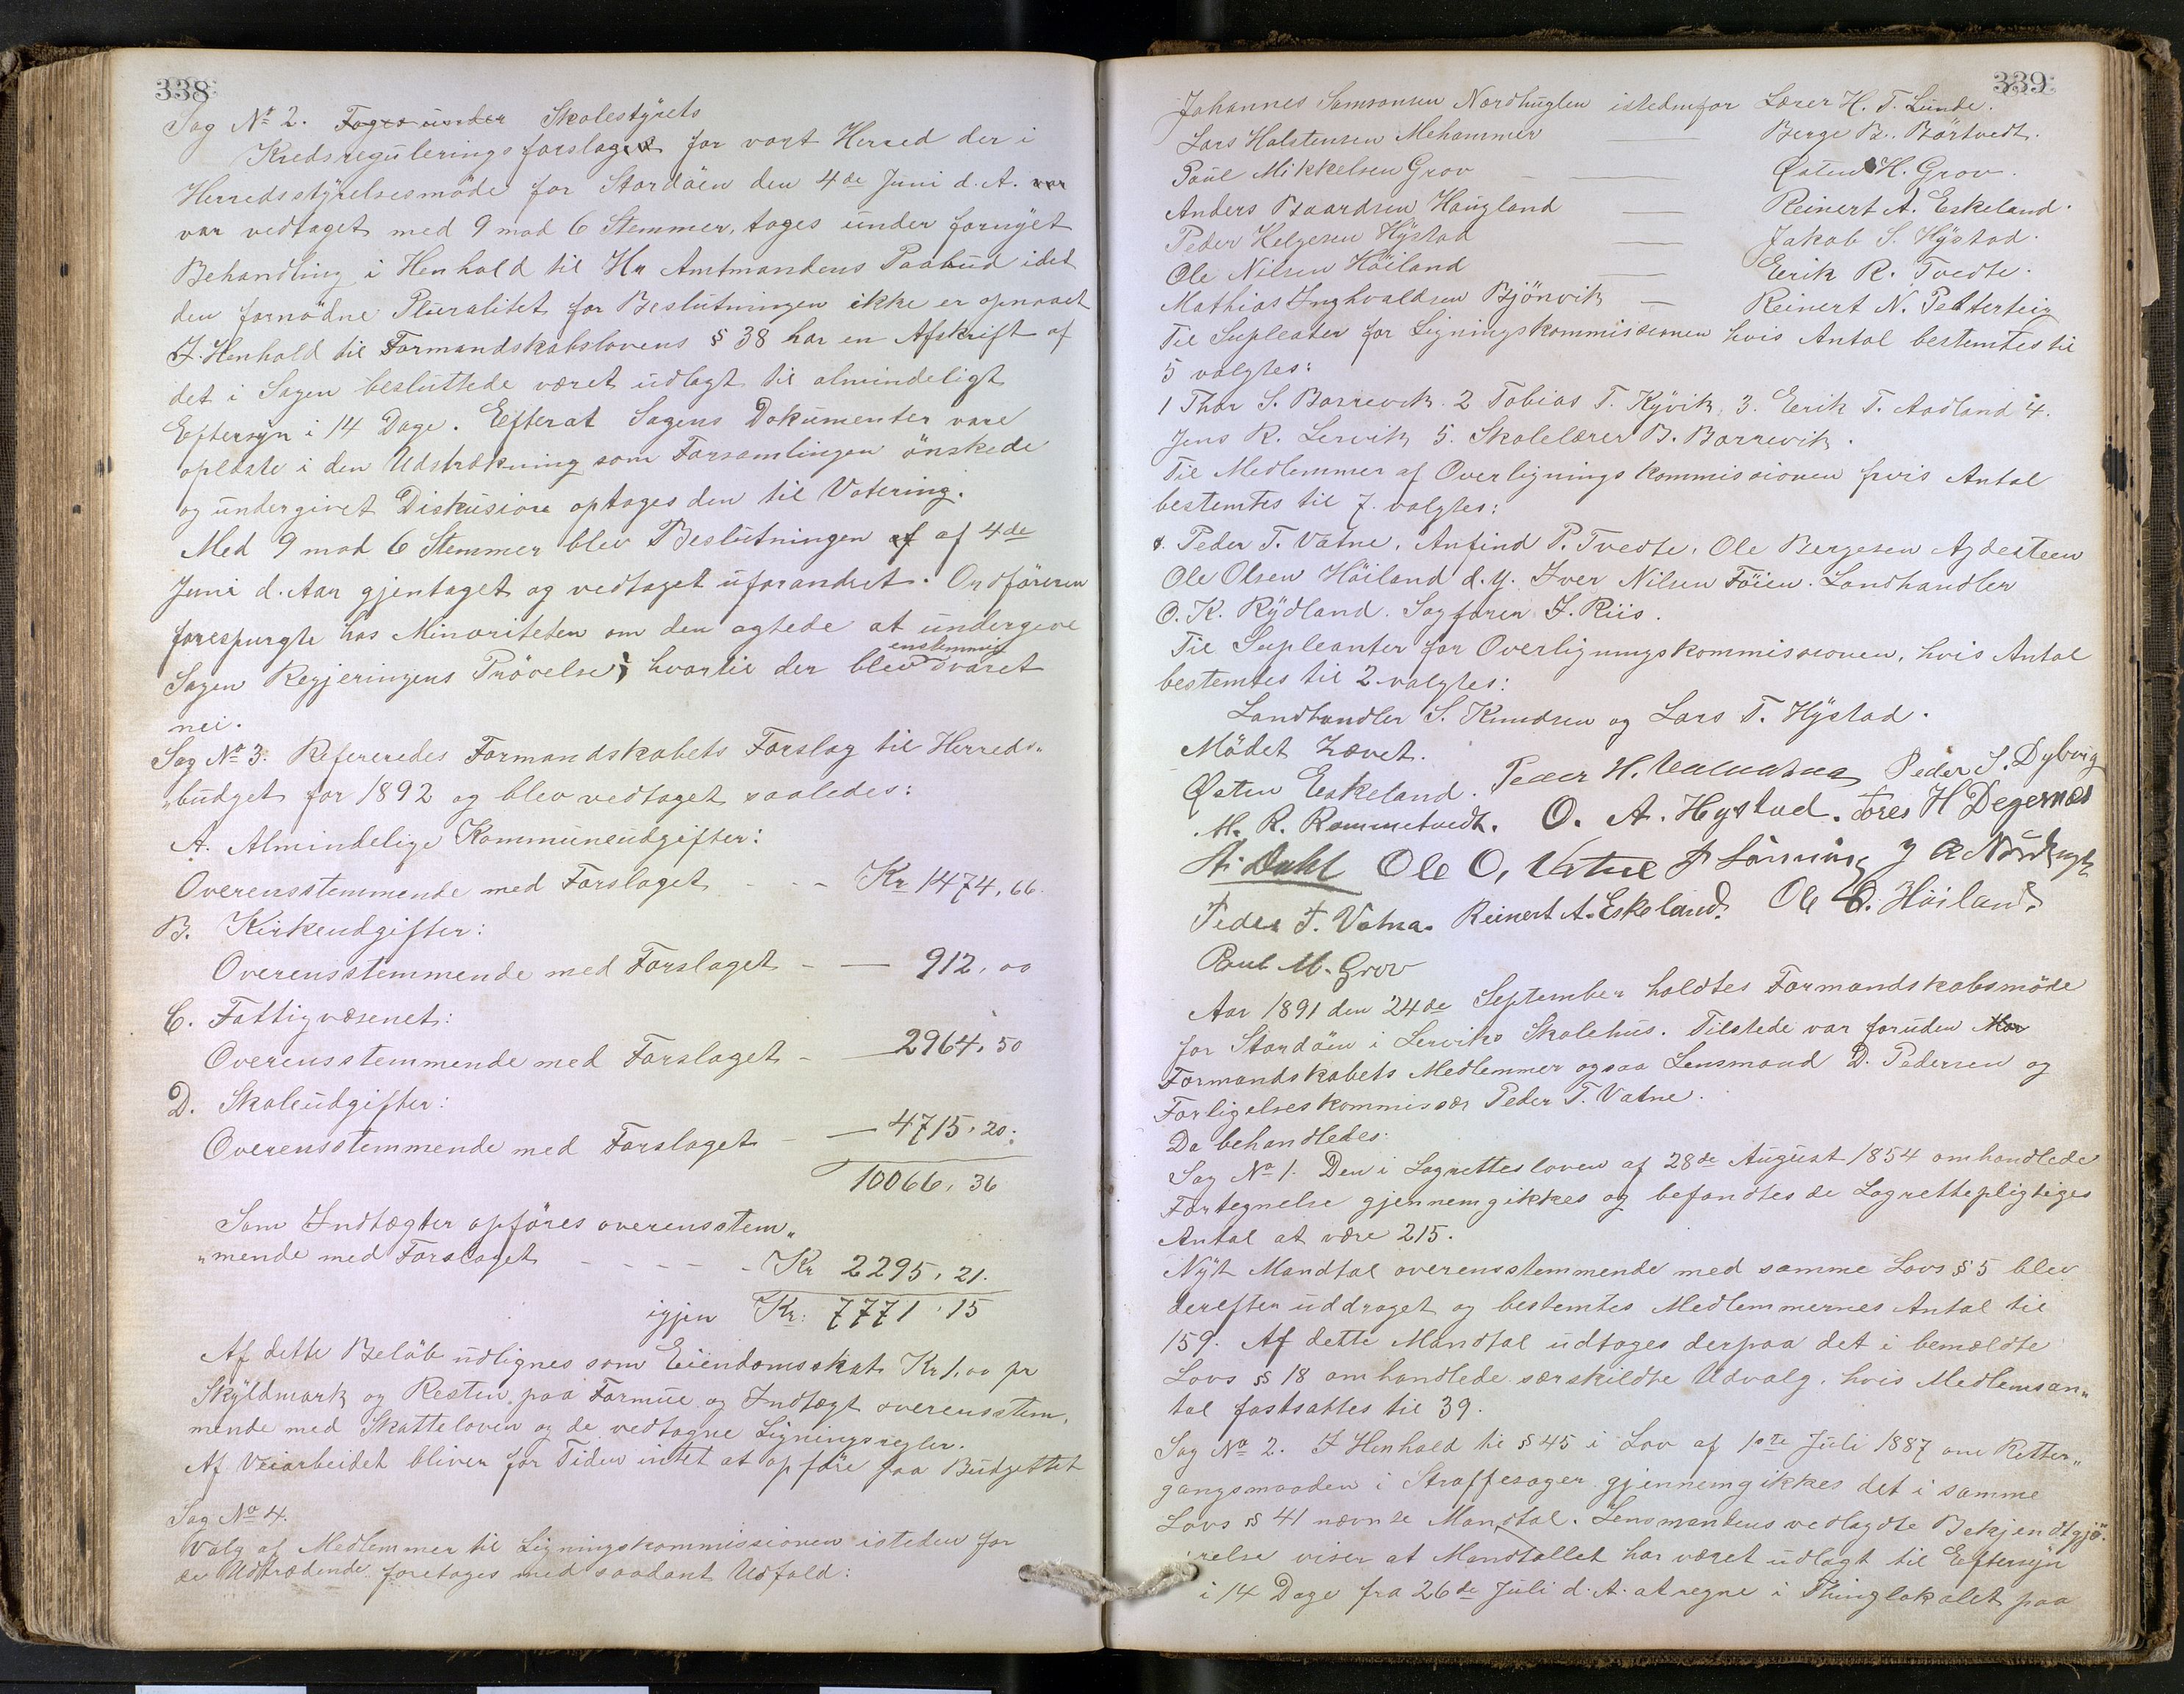 338
Sag No 2. Tages under Skolestÿrets
Kredsreguleringsforslaget for vort Herred der i
Herredsstÿrelsesmöde for Stordöen den 4de Juni d. A. var
var vedtaget med 9 mod 6 Stemmer, tages under fornÿet
Behandling i Henhold til Hr Amtmandens Paabud idet
den fornödne Pluralitet for Beslutningen ikke er opnaaet
I Henhold til Formandskabslovens § 38 har en Afskrift af
det i Sagen besluttede været udlagt til almindeligt
Eftersyn i 14 Dage. Efterat Sagens Dokumenter vare
oplæste i den Udstrækning som Forsamlingen önskede
og undergivet Diskusion optages den til Votering.
Med 9 mod 6 Stemmer blev Beslutningen af af 4de
Juni d. Aar gjentaget og vedtaget uforandret. Ordföreren
forespurgte hos Minoriteten om den agtede at undergive
Sagen Regjeringens Prövelse; hvortil der blev enstemmig svaret
nei.
Sag No 3. Refereredes Formandskabets Forslag til Herreds„
„budget for 1892 og blev vedtaget saaledes:
A. Almindelige Kommuneudgifter:
Overensstemmende med Forslaget - - - Kr 1474,66.
B. Kirkeudgifter:
Overensstemmende med Forslaget - — 912,00
C. Fattigvæsenet:
Overensstemmende med Forslaget - — 2964,50
D. Skoleudgifter:
Overensstemmende med Forslaget - — 4715,20.
10066,36
Som Indtægter opföres overensstem„
„mende med Forslaget - - - - - Kr 2295,21.
igjen Kr: 7771,15
Af dette Belöb udlignes som Eiendomsskat Kr 1,00 pr
Skÿldmark og Resten paa Formue og Indtægt overensstem„
mende med Skatteloven og de vedtagne Ligningsregler.
Af Veiarbeidet bliver for Tiden intet at opföre paa Budgettet
Sag No 4.
Valg af Medlemmer til Ligningskommissionen isteden for
de Udtrædende foretages med saadant Udfald:
339
Johannes Samsonsen Nordhuglen istedenfor Lærer H. T. Lunde.
Lars Halstensen Mehammer — Berge B. Börtvedt.
Poul Mikkelsen Grov — Østen H. Grov.
Anders Baardsen Hougland — Reinert A. Eskeland.
Peder Helgesen Hÿstad — Jakob S. Hÿstad.
Ole Nilsen Höiland — Eerik R. Tvedte.
Mathias Inghvaldsen Bjönvik — Reinert N. Petterteig
Til Supleanter for Ligningskommissionen hvis Antal bestemtes til
5 valgtes:
1 Thor S. Borrevik. 2 Tobias T. Kÿvik. 3. Eerik T. Aadland 4.
Jens R. Lervik 5. Skolelærer B. Borrevik.
Til Medlemmer af Overlignings kommissionen hvis Antal
bestemtes til 7. valgtes:
Peder T. Vatne. Anfind P. Tvedte. Ole Bergesen Agdesteen
Ole Olsen Höiland d. y. Iver Nilsen Föien. Landhandler
O. K. Rÿdland. Sagförer I. Riis.
Til Supleanter for Overligningskommissionen, hvis Antal
bestemtes til 2 valgtes:
Landhandler S. Knudsen og Lars T. Hÿstad.
Mödet hævet.
Østen Eskeland. Peder H. Peder S. Dybvig
M. R. Rommetvedt. O. A. Hystad. Tores H Degernæs
A. Dahl Ole O. Vatne J R
Peder T. Vatna. Reinert A. Eskeland. Ole O. Höiland.
Poul M. Grov
Aar 1891 den 24de September holdtes Formandskabsmöde
for Stordöen i Lerviks Skolehus. Tilstede var foruden
Formandskabets Medlemmer ogsaa Lensmand D. Pedersen og
Forligelseskommissær Peder T. Vatne.
Da behandledes:
Sag No 1. Den i Lagrettesloven af 28de August 1854 omhandlede
Fortegnelse gjennemgikkes og befandtes de Lagrettepligtiges
Antal at være 215.
Nÿt Mandtal overensstemmende med samme Lovs § 5 blev
derefter uddraget og bestemtes Medlemmernes Antal til
159. Af dette Mandtal udtoges derpaa det i bemældte
Lovs § 18 omhandlede særskildte Udvalg, hvis Medlemsan„
tal fastsattes til 39.
Sag No 2. I Henhold til § 45 i Lov af 1ste Juli 1887 om Retter„
gangsmaaden i Straffesager gjennemgikkes det i samme
Lovs § 41 nævnte Mandtal. Lensmandens vedlagdte Bekjendtgjö„
relse viser at Mandtallet har været udlagt til Eftersÿn
i 14 Dage fra 26de Juli d. A. at regne i Thinglokalet paa